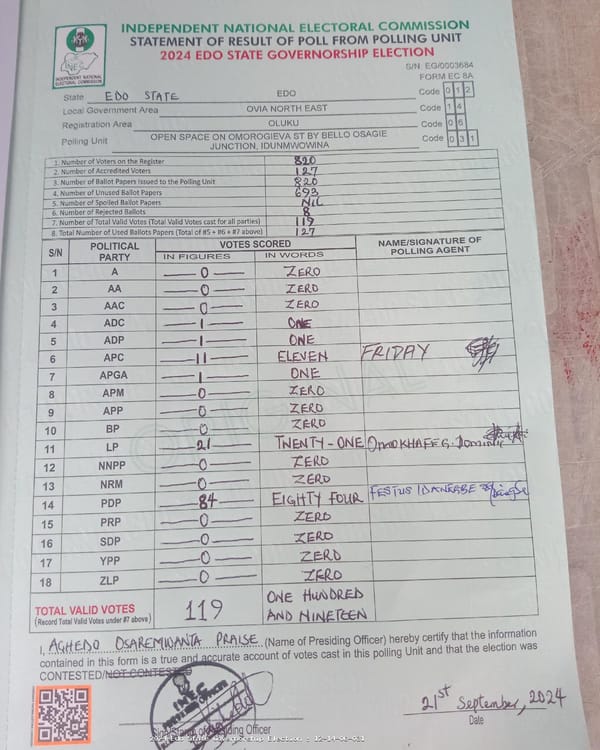 INDEPENDENT NATIONAL ELECTORAL COMMISSION
STATEMENT OF RESULT OF POLL FROM POLLING UNIT
2024 EDO STATE GOVERNORSHIP ELECTION
INEC
INDEPENDENT NATIONAL ELECTORAL COMMISSION
S/N EG/0003684
FORM EC 8A
State EDO STATE EDO Code 0 1 2
Local Government Area OVIA NORTH EAST Code 1 4
Registration Area OLUKU Code 0 6
Polling Unit OPEN SPACE ON OMOROGIEVA ST BY BELLO OSAGIE JUNCTION, IDUNMWOWINA Code 0 3 1
1. Number of Voters on the Register 820
2. Number of Accredited Voters 127
3. Number of Ballot Papers Issued to the Polling Unit 820
4. Number of Unused Ballot Papers 693
5. Number of Spoiled Ballot Papers NIL
6. Number of Rejected Ballots 8
7. Number of Total Valid Votes (Total Valid Votes cast for all parties) 119
8. Total Number of Used Ballots Papers (Total of #5 + #6 + #7 above) 127
S/N POLITICAL PARTY VOTES SCORED NAME/SIGNATURE OF POLLING AGENT
IN FIGURES IN WORDS
1 A 0 ZERO
2 AA 0 ZERO
3 AAC 0 ZERO
4 ADC 1 ONE
5 ADP 1 ONE
6 APC 11 ELEVEN FRIDAY
7 APGA 1 ONE
8 APM 0 ZERO
9 APP 0 ZERO
10 BP 0 ZERO
11 LP 21 TWENTY-ONE OMOKHAFE G. Dominic
12 NNPP 0 ZERO
13 NRM 0 ZERO
14 PDP 84 EIGHTY FOUR FESTUS
15 PRP 0 ZERO
16 SDP 0 ZERO
17 YPP 0 ZERO
18 ZLP 0 ZERO
TOTAL VALID VOTES 119 ONE HUNDRED
(Record Total Valid Votes under #7 above) AND NINETEEN
I, AGHEDO OSAREMWANTA PRAISE (Name of Presiding Officer) hereby certify that the information
contained in this form is a true and accurate account of votes cast in this polling Unit and that the election was
CONTESTED/NOT CONTESTED
21st September, 2024
Date
Presiding Officer